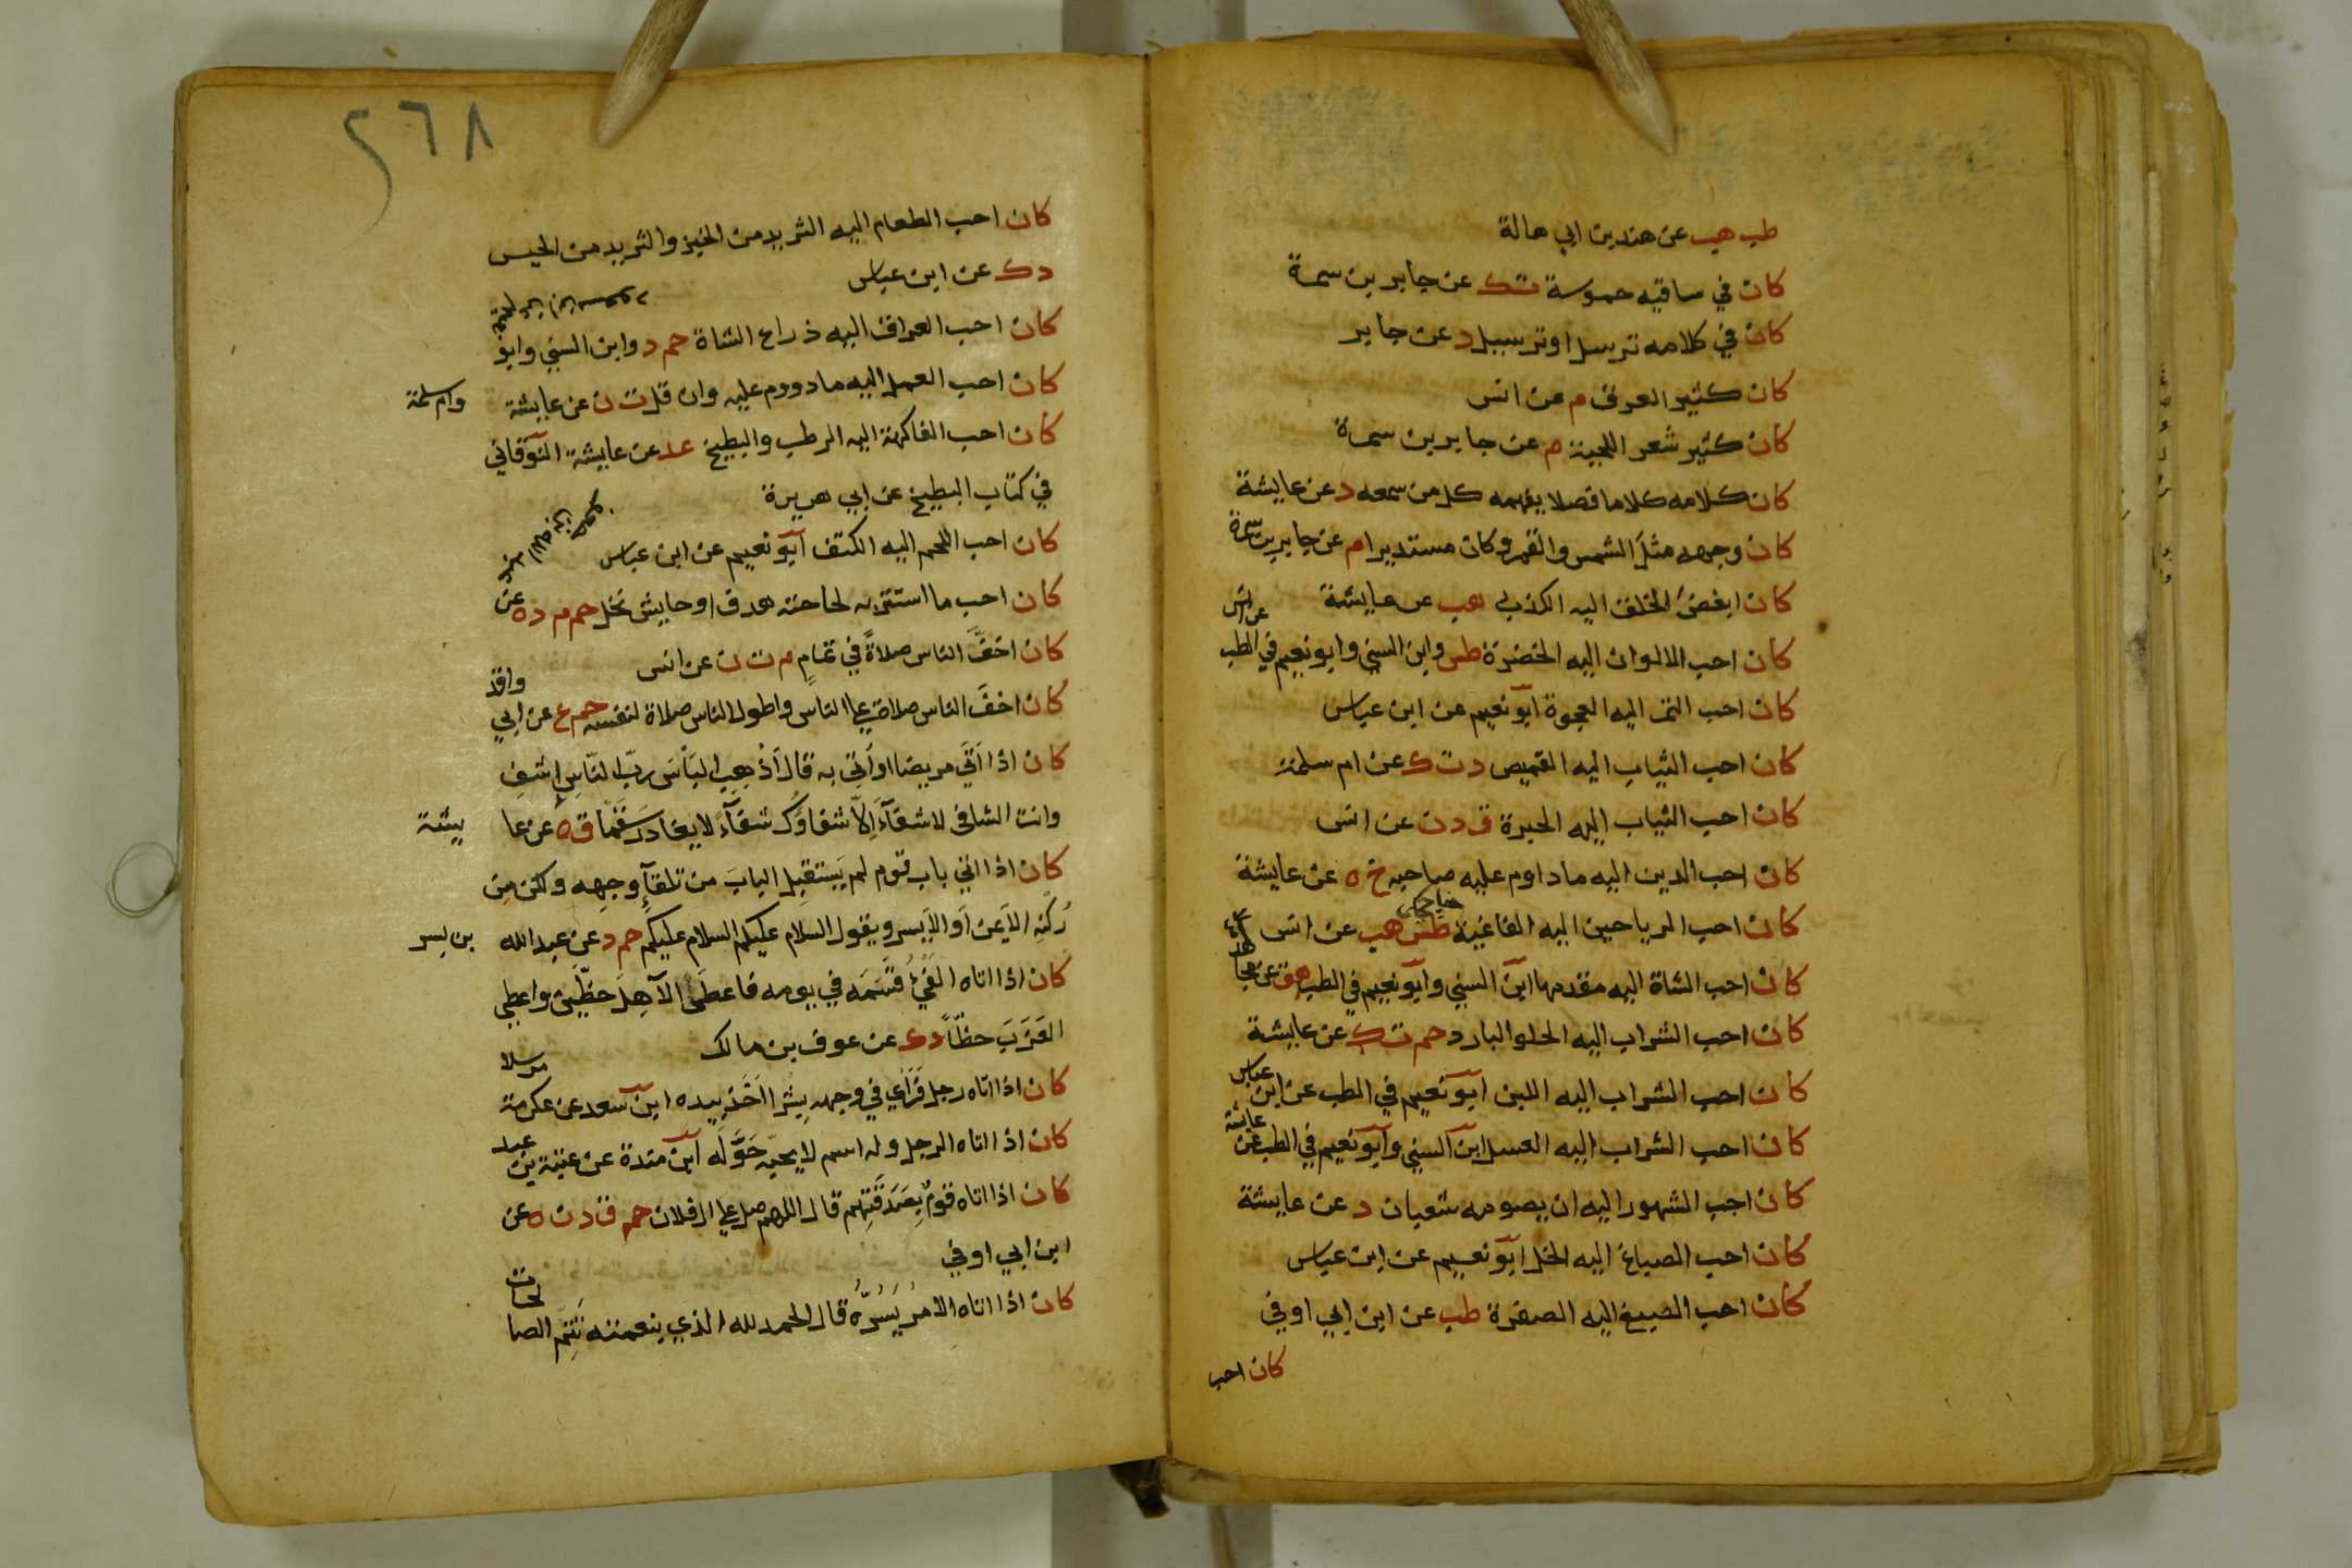 طب هب عن هند بن ابي هالة
كان في ساقيه حموسة ت ك عن جابر بن سمرة
كان في كلامه ترتيل او ترسيل د عن جابر
كان كثير العرق م عن انس
كان كثير شعر اللحية م عن جابر بن سمرة
كان كلامه كلاما فصلا يفهمه كل من سمعه د عن عايشة
كان وجهه مثل الشمس والقمر وكان مستديرا م عن جابر بن سمرة
كان ابغض الخلق اليه الكذب هب عن عايشة
كان احب الالوان اليه الخضرة طس وابن السني وابو نعيم في الطب عن انس
كان احب التمر اليه العجوة ابو نعيم عن ابن عباس
كان احب الثياب اليه القميص د ت ك عن ام سلمة
كان احب الثياب اليه الحبرة ق د ن عن انس
كان احب الدين اليه ما داوم عليه صاحبه خ ه عن عايشة
كان احب الرياحين اليه الفاغية طس هب عن انس
كان احب الشاة اليه مقدمها ابن السني وابو نعيم في الطب هق عن مجاهد
كان احب الشراب اليه الحلو البارد حم ت ك عن عايشة
كان احب الشراب اليه اللبن ابو نعيم في الطب عن ابن عباس
كان احب الشراب اليه العسل ابن السني وابو نعيم في الطب عن عايشة
كان احب الشهور اليه ان يصومه شعبان د عن عايشة
كان احب الصباغ اليه الخل ابو نعيم عن ابن عباس
كان احب الصبغ اليه الصفرة طب عن ابن ابي اوفي
كان احب
٢٦٨
كان احب الطعام اليه الثريد من الخبز والثريد من الحيس
د ك عن ابن عباس
كان احب العراق اليه ذراع الشاة حم د وابن السني وابو
كان احب العمل اليه ما دووم عليه وان قل ت ن عن عايشة وام سلمة
كان احب الفاكهة اليه الرطب والبطيخ عد عن عايشة النوقاني
في كتاب البطيخ عن ابي هريرة
كان احب اللحم اليه الكتف ابو نعيم عن ابن عباس
كان احب ما استتر به لحاجته هدف او حايش نخل حم م د ه عن
كان اخفَّ الناس صلاةً في تمام م ت ن عن انس
كان اخفَّ الناس صلاة علي الناس واطول الناس صلاة لنفسه حم ع عن ابي واقد
كان اذا اَتَي مريضا او اُتي به قال اَذْهِبِ البَاْسَ ربّ النّاسِ اِشفِ
وانت الشافي لا شفآءَ اِلاّ شفاؤك شفآءً لا يغادر سَقَمًا ق ه عن عايشة
كان اذا اتي باب قوم لم يَستقبِل البابَ من تلقآءِ وجهِه ولكن مِن
رُكْنِهِ الاَيمَن اَو الاَيسر ويقول السلام عليكم السلام عليكم حم د عن عبد الله بن بسر
كان اذا اتاه الفَيْءُ قَسَمَه في يومه فاعطَى الآهِلَ حظّينِ واعطي
العَزَبَ حظّاً د ك عن عوف بن مالك
كان اذا اتاه رجل فَرَاَي في وجهه بِشرا اَخَذ بيده ابن سعد عن عكرمة مرسلا
كان اذا اتاه الرجل وله اسم لا يحبّه حَوَّلَه ابن مندة عن عتبة بن عبد
كان اذا اتاه قومٌ بِصَدَقَتِهِم قال اللهم صل علي ال فلان حم ق د ن ه عن
ابن ابي اوفي
كان اذا اتاه الامرُ يَسُرُّه قال الحمد لله الذي بنعمته تَتِمّ الصالحات